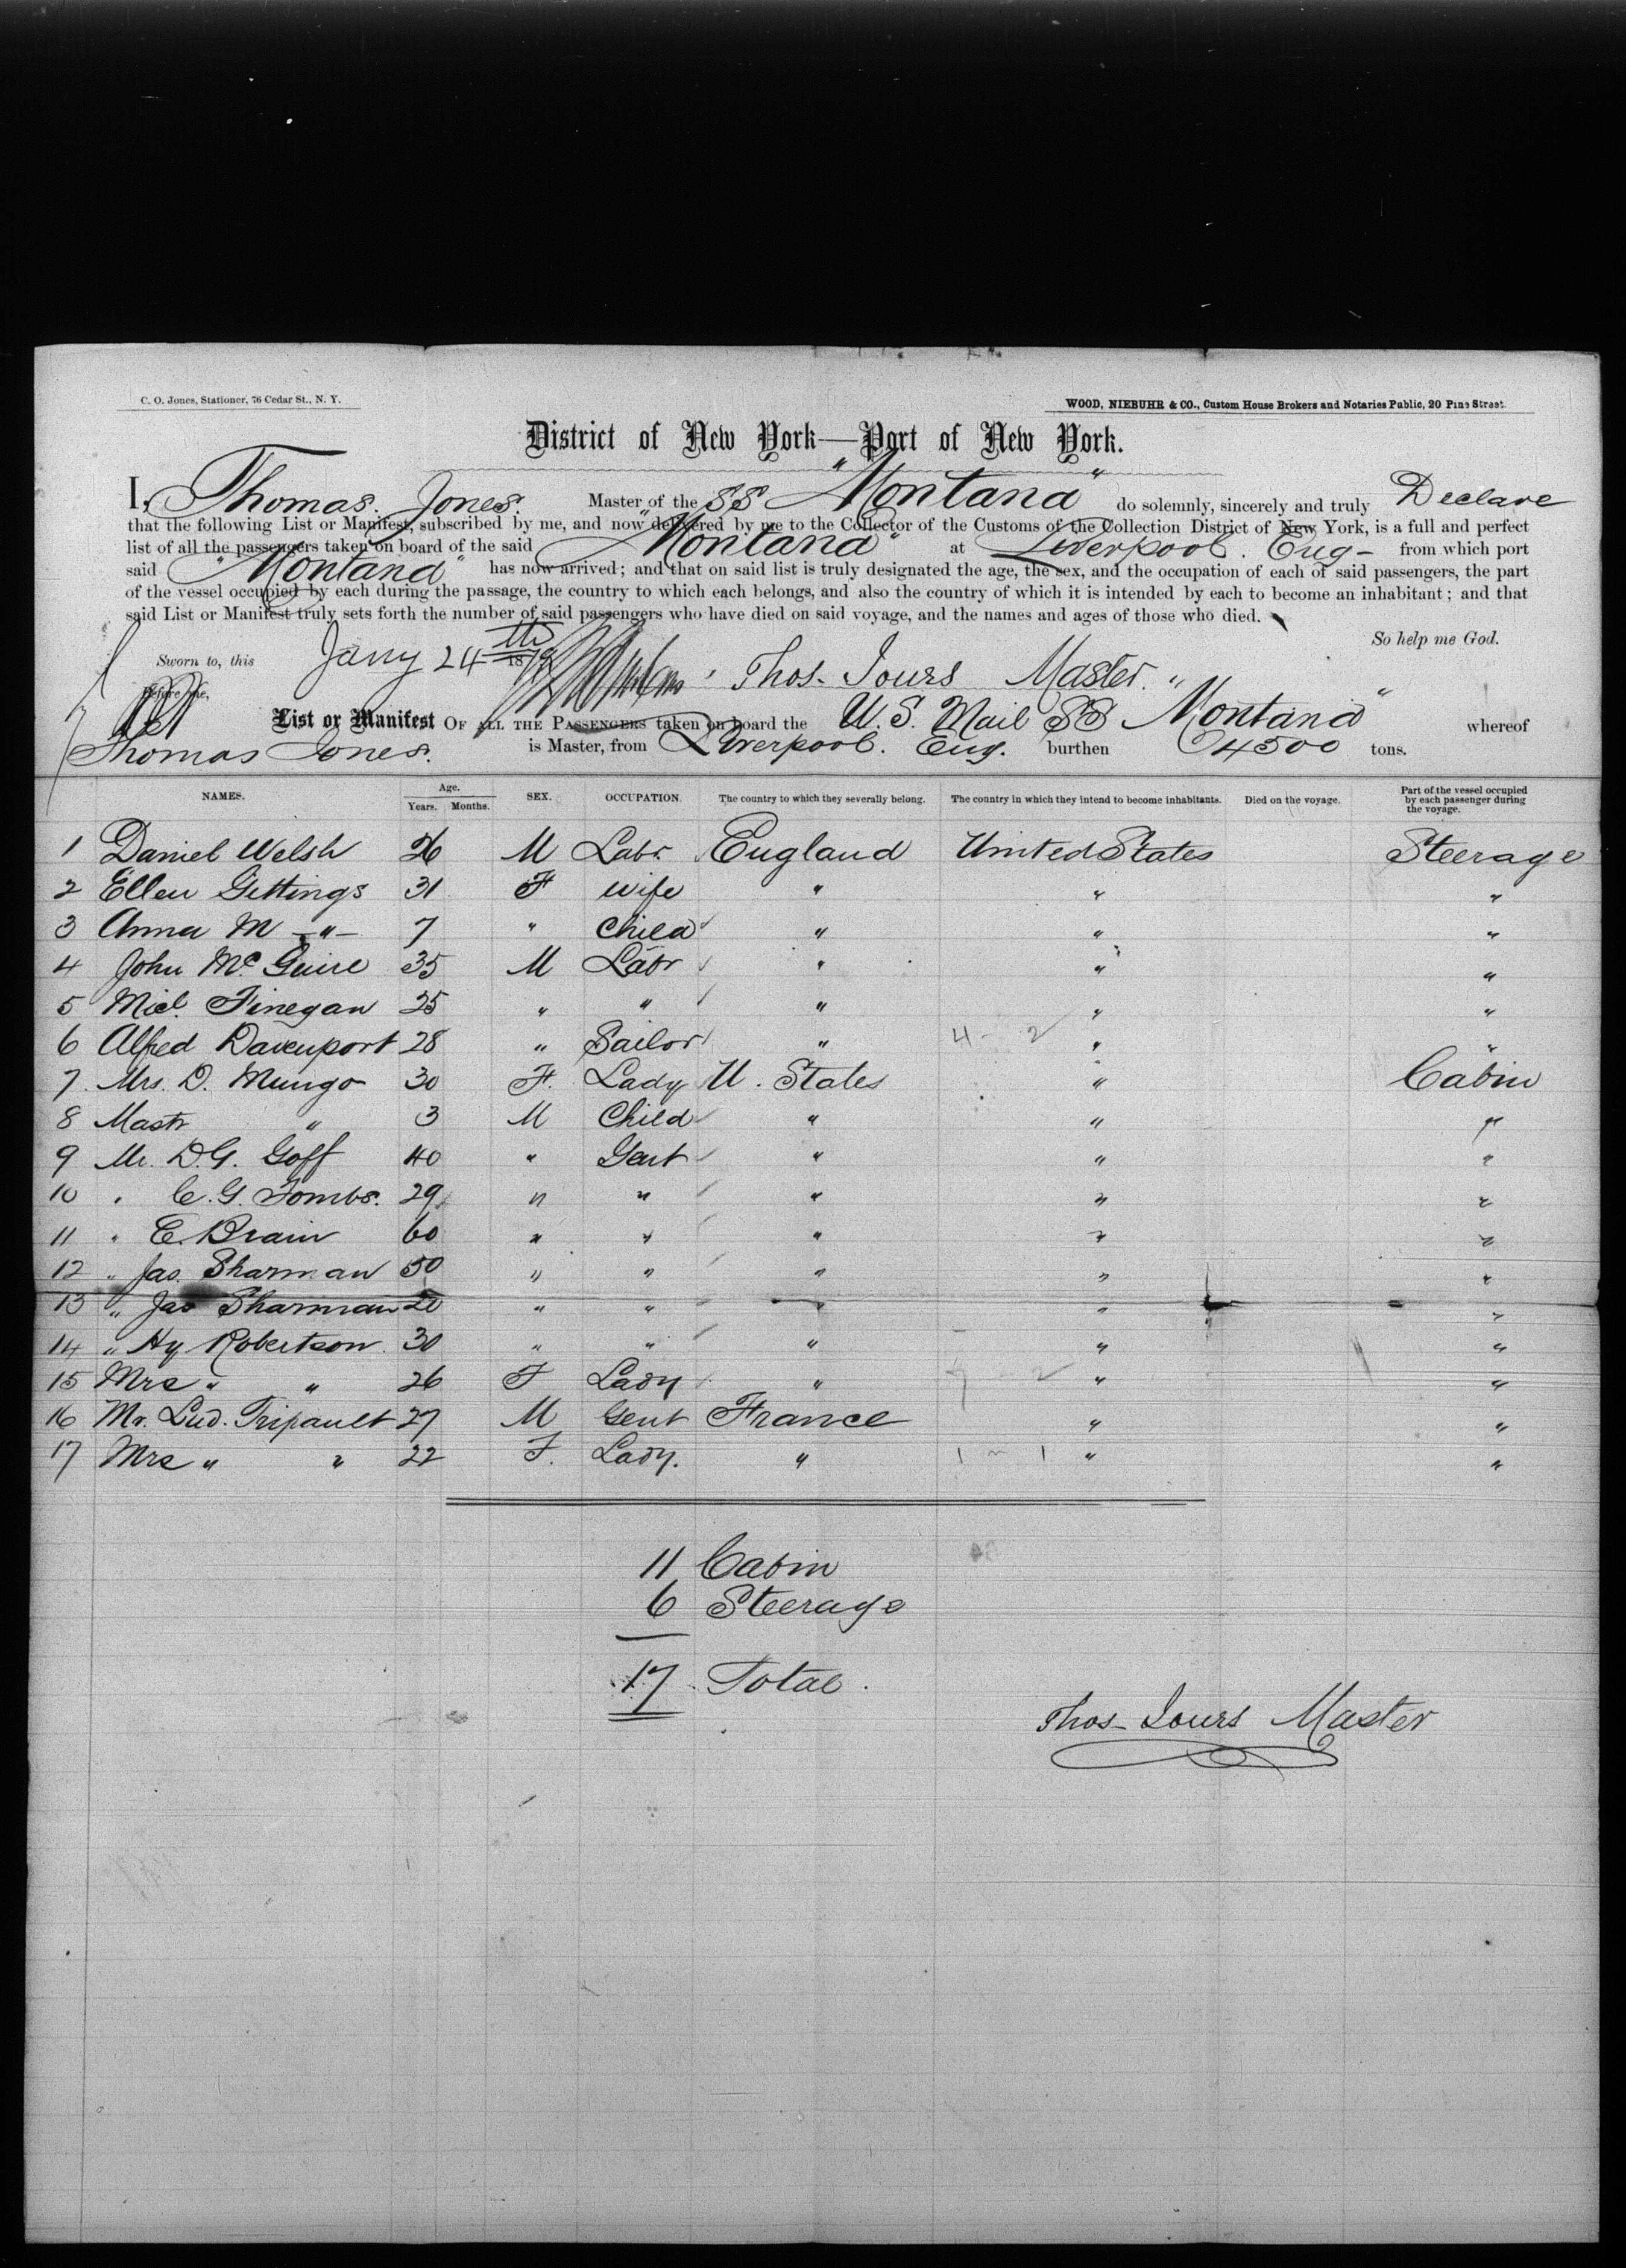 C. O. Jones, Stationer, 76 Cedar St., N. Y.
WOOD, NIEBUHR & CO., Custom House Brokers and Notaries Public, 20 Pine Street.
District of New York—Port of New York.
I, Thomas Jones. Master of the SS "Montana" do solemnly, sincerely and truly Declare
that the following List or Manifest, subscribed by me, and now delivered by me to the Collector of the Customs of the Collection District of New York, is a full and perfect
list of all the passengers taken on board of the said "Montana" at Liverpool. Eng- from which port
said "Montana" has now arrived; and that on said list is truly designated the age, the sex, and the occupation of each of said passengers, the part
of the vessel occupied by each during the passage, the country to which each belongs, and also the country of which it is intended by each to become an inhabitant; and that
said List or Manifest truly sets forth the number of said passengers who have died on said voyage, and the names and ages of those who died.
So help me God.
Sworn to, this Jany 24th 187 Thos- Jones Master.
Before me,
List or Manifest OF ALL THE PASSENGERS taken on board the U.S. Mail SS "Montana" whereof
Thomas Jones. is Master, from Liverpool. Eng. burthen 4500 tons.
NAMES. Age. Years. Months. SEX. OCCUPATION. The country to which they severally belong. The country in which they intend to become inhabitants. Died on the voyage. Part of the vessel occupied by each passenger during the voyage.
1 Daniel Welsh 26 M Labr. England United States Steerage
2 Ellen Gettings 31 F wife " " "
3 Anna M -"- 7 " Child " " "
4 John Mc Guire 35 M Labr " " "
5 Micl. Finegan 25 " " " " "
6 Alfred Davenport 28 " Sailor " 4 - 2 " "
7. Mrs. D. Mungo 30 F. Lady U. States " Cabin
8 Mastr " 3 M Child " " "
9 Mr. D.G. Goff 40 " Gent " " "
10 " C. G. Tombs. 29 " " " " "
11 " C. Brain 60 " " " " "
12 " Jas. Sharman 50 " " " " "
13 " Jas Sharman 20 " " " " "
14 " Hy Robertson. 30 " " " " "
15 Mrs " " 26 F Lady " 7 2 " "
16 Mr. Lud. Tripault 27 M Gent France " "
17 Mrs " " 22 F. Lady. " 1 - 1 " "
11 Cabin
6 Steerage
17 Total.
Thos- Jones Master